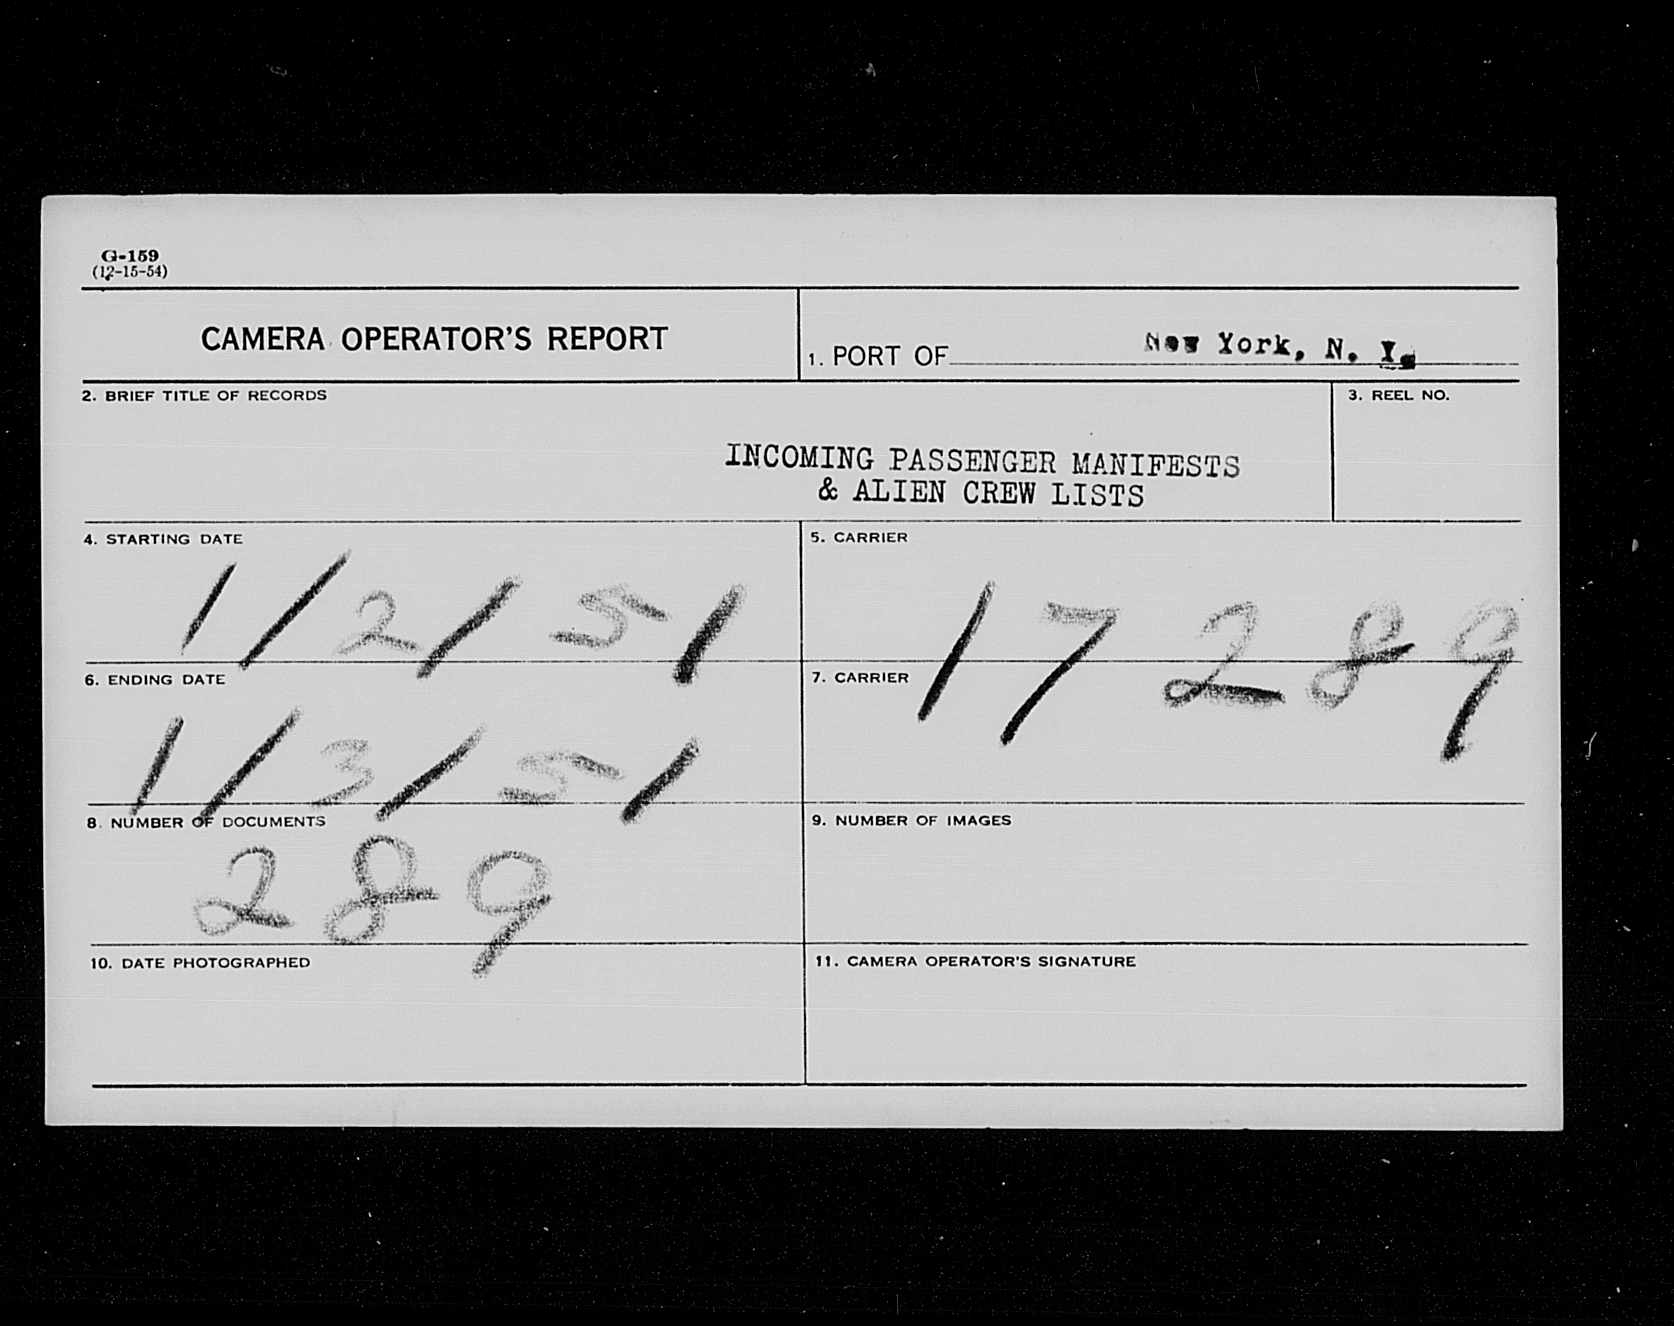 G-159
(12-15-54)
CAMERA OPERATOR'S REPORT
1. PORT OF New York, N. Y.
2. BRIEF TITLE OF RECORDS
3. REEL NO.
INCOMING PASSENGER MANIFESTS
& ALIEN CREW LISTS
4. STARTING DATE
1/2/51
5. CARRIER
17289
6. ENDING DATE
1/3/51
7. CARRIER
8. NUMBER OF DOCUMENTS
289
9. NUMBER OF IMAGES
10. DATE PHOTOGRAPHED
11. CAMERA OPERATOR'S SIGNATURE